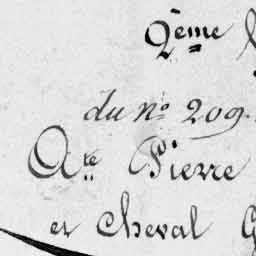 2ème
du nº 209.
Ate Pierre
et Cheval G